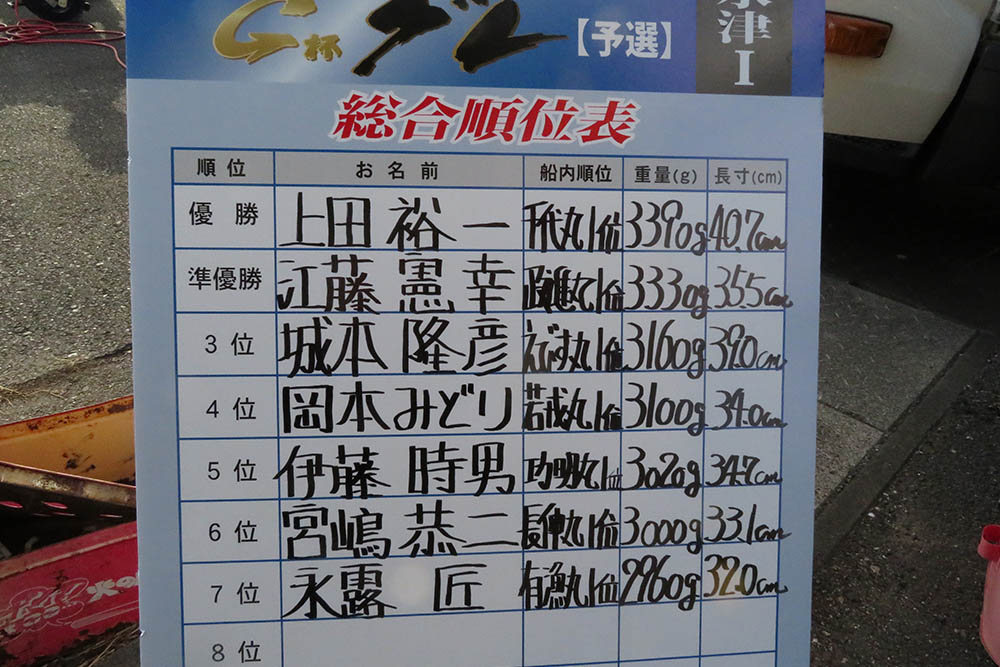 G杯グレ【予選】
津I
総合順位表
順位 お名前 船内順位 重量(g) 長寸(cm)
優勝 上田裕一 千代丸1位 3390g 40.7cm
準優勝 江藤憲幸 1位 3330g 35.5cm
3位 城本隆彦 えびす丸1位 3160g 39.0cm
4位 岡本みどり 若戎丸1位 3100g 34.0cm
5位 伊藤時男 功明丸1位 3020g 34.7cm
6位 宮嶋恭二 長伸丸1位 3000g 33.1cm
7位 永露匠 有漁丸1位 2960g 32.0cm
8位